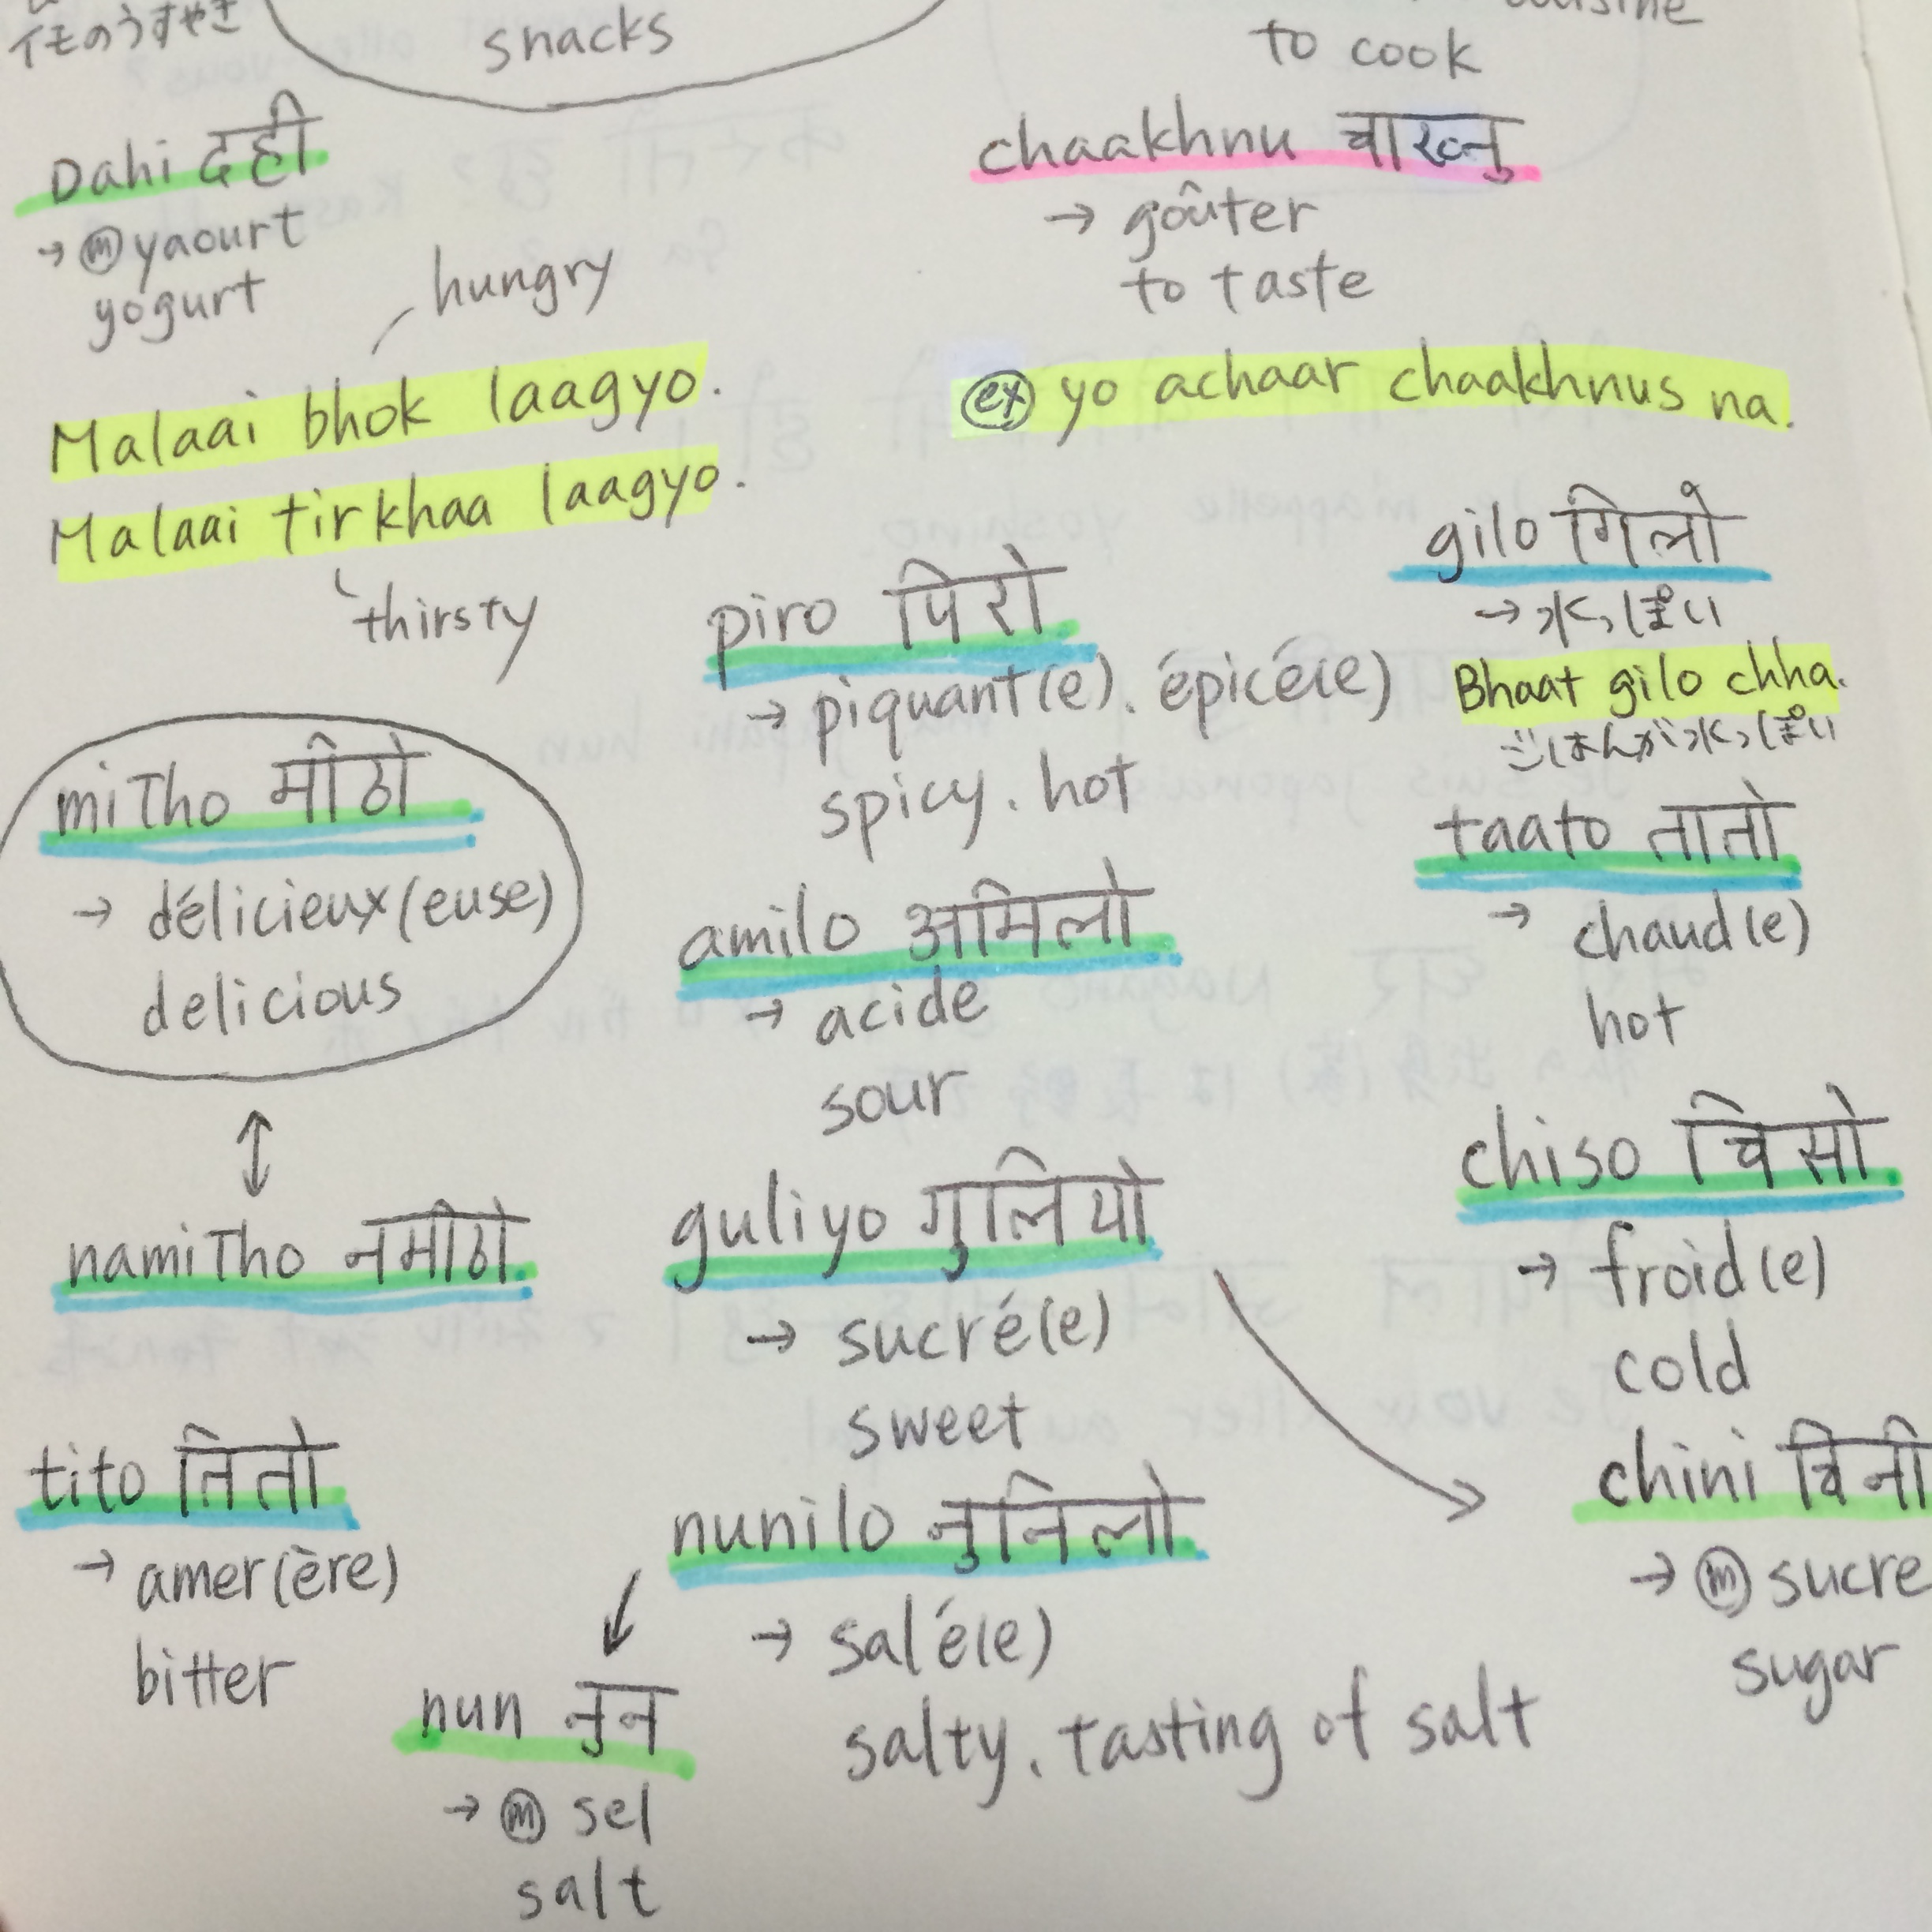 イモのうすやき
snacks
to cook
Dahi दही
→ ⓜ yaourt
yogurt
hungry
Malaai bhok laagyo.
Malaai tirkhaa laagyo.
thirsty
chaakhnu चाख्नु
→ goûter
to taste
ex yo achaar chaakhnus na.
gilo गिलो
→ 水っぽい
Bhaat gilo chha.
ごはんが水っぽい
piro पिरो
→ piquant(e). épicé(e)
spicy. hot
taato तातो
→ chaud(e)
hot
miTho मीठो
→ délicieux(euse)
delicious
↕
namiTho नमीठो
amilo अमिलो
→ acide
sour
chiso चिसो
→ froid(e)
cold
guliyo गुलियो
→ sucré(e)
sweet
chini चिनी
→ ⓜ sucre
sugar
tito तितो
→ amer(ère)
bitter
nunilo नुनिलो
→ salé(e)
salty. tasting of salt
nun नुन
→ ⓜ sel
salt